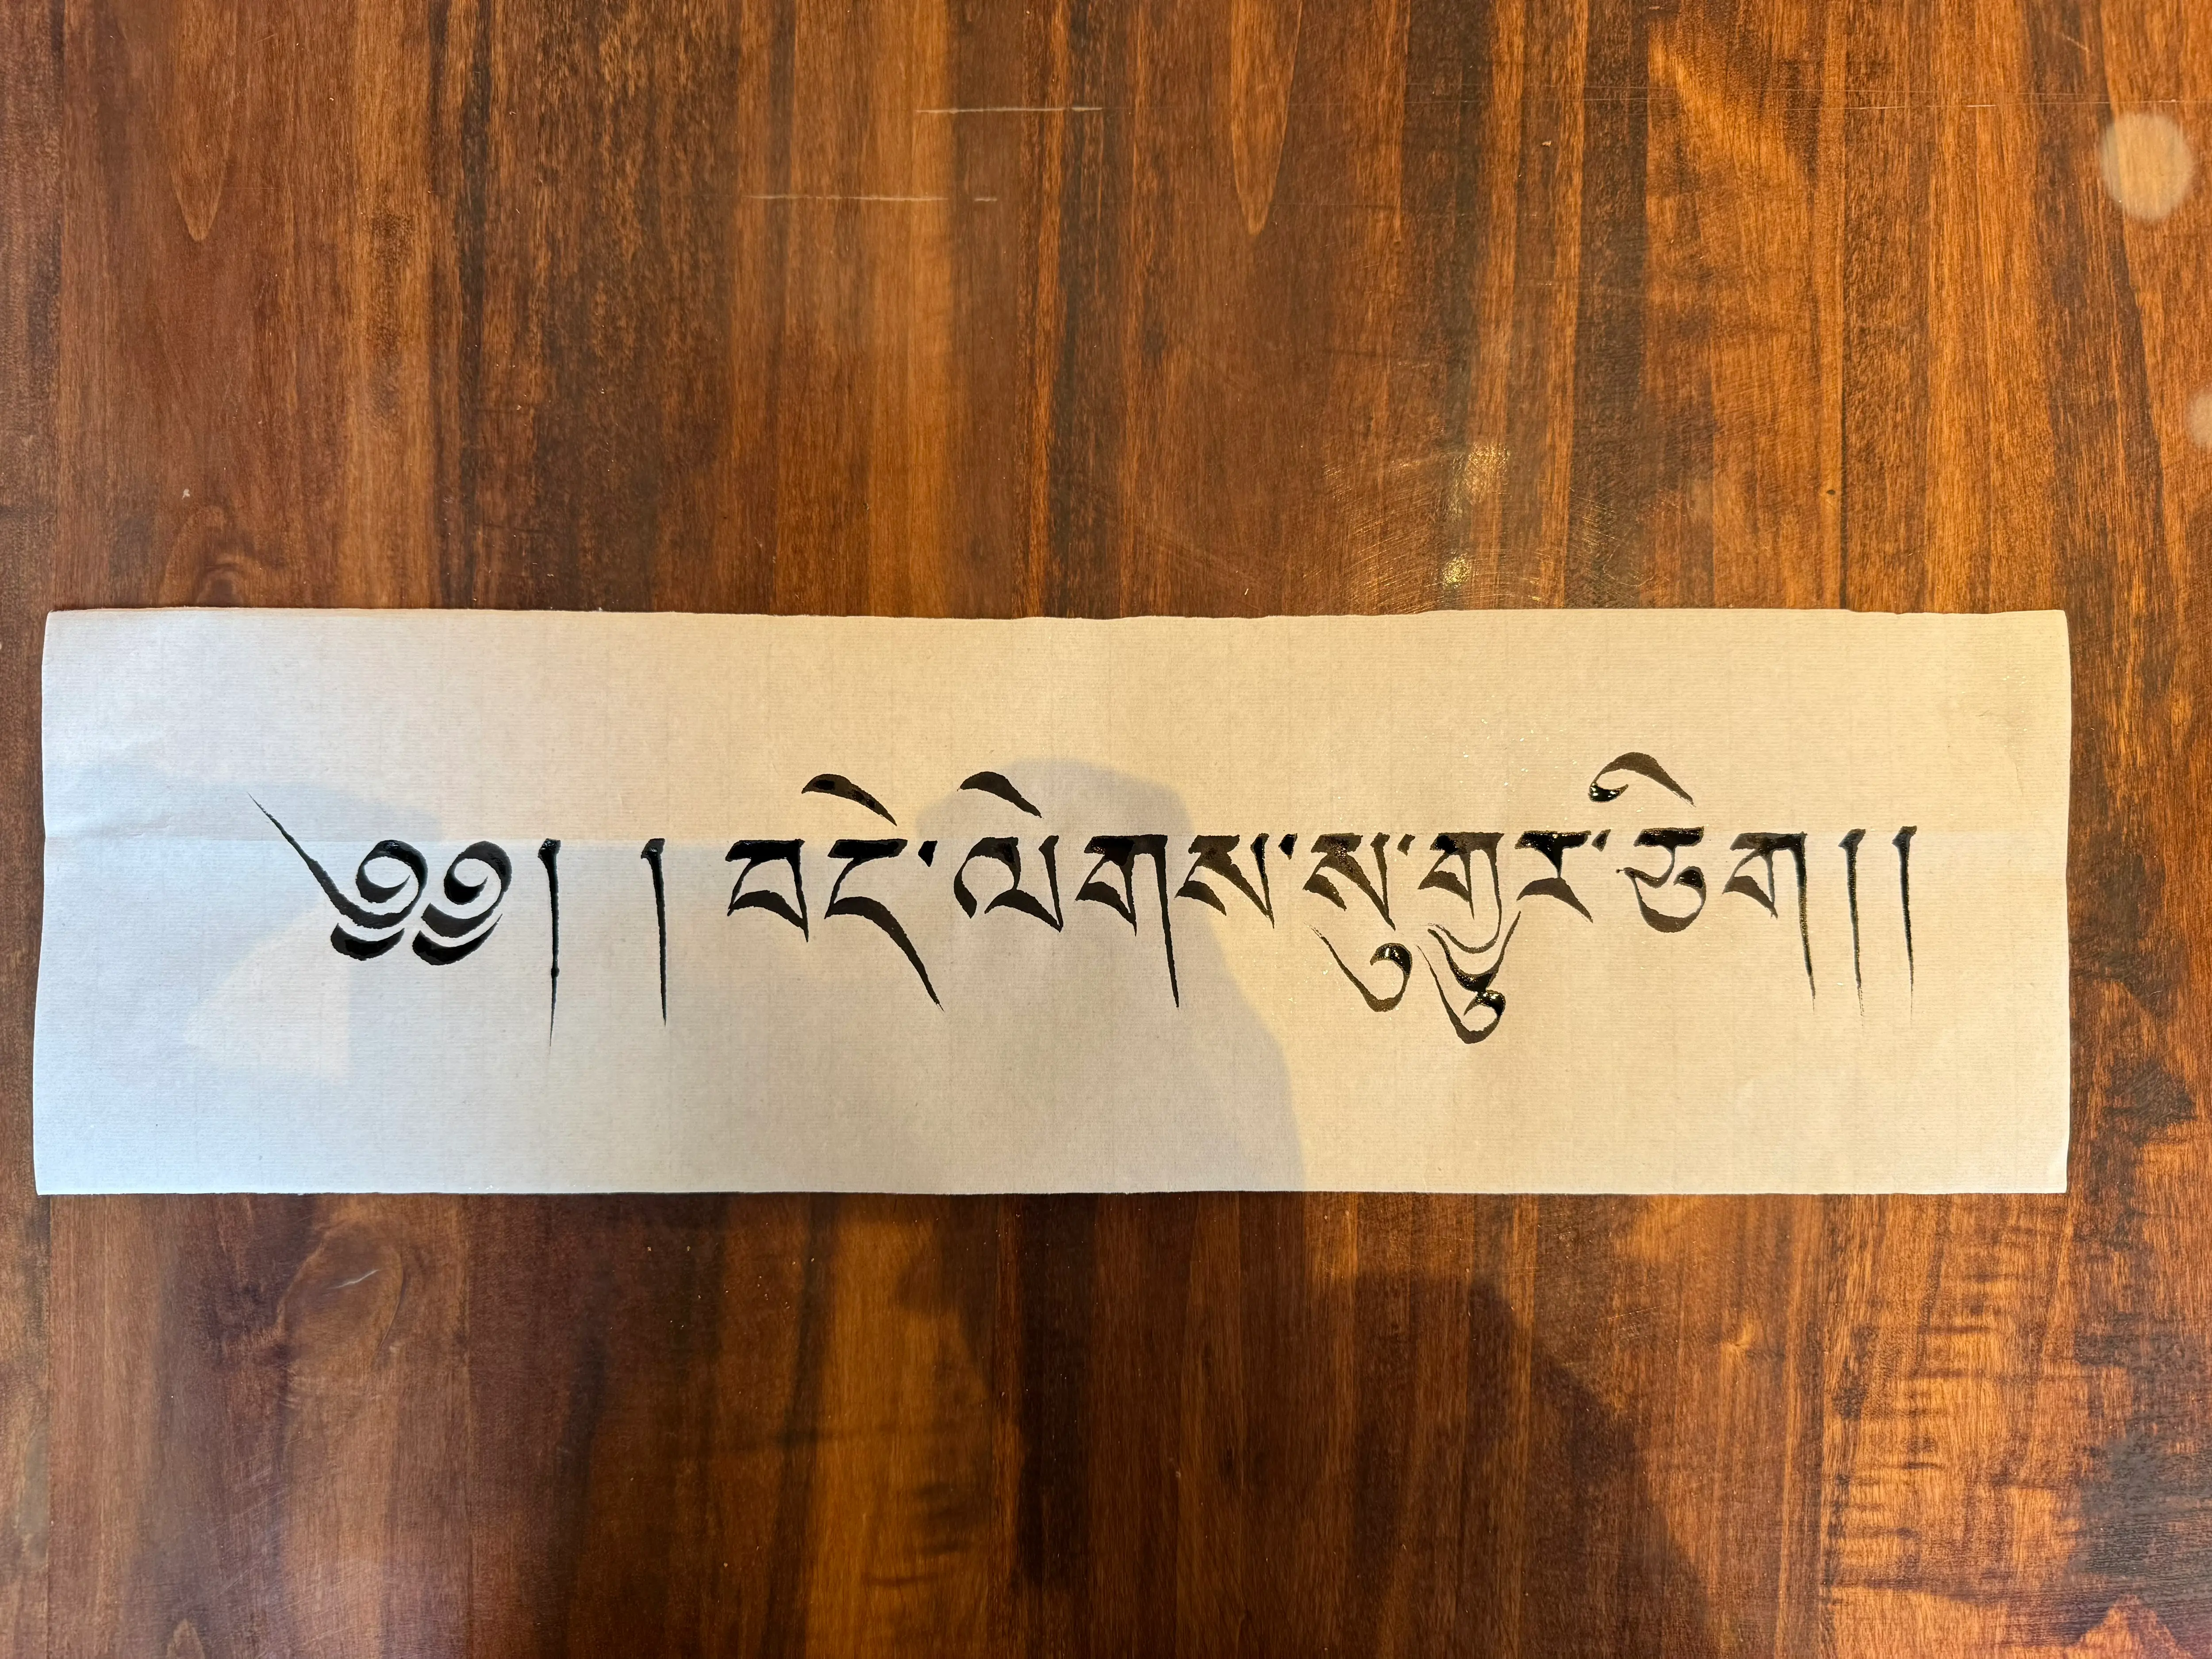 ༄༅། །བདེ་ལེགས་སུ་གྱུར་ཅིག།།